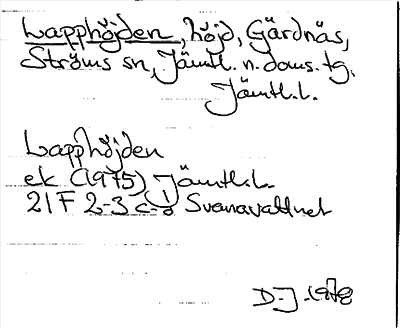 Lapphöjden, höjd, Gärdnäs,
Ströms sn, Jämtl. n. doms. tg.
Jämtl.l.
Lapphöjden
ek (1975) Jämtl.l.
21F 2-3 c-d Svanavattnet
D-J 1978